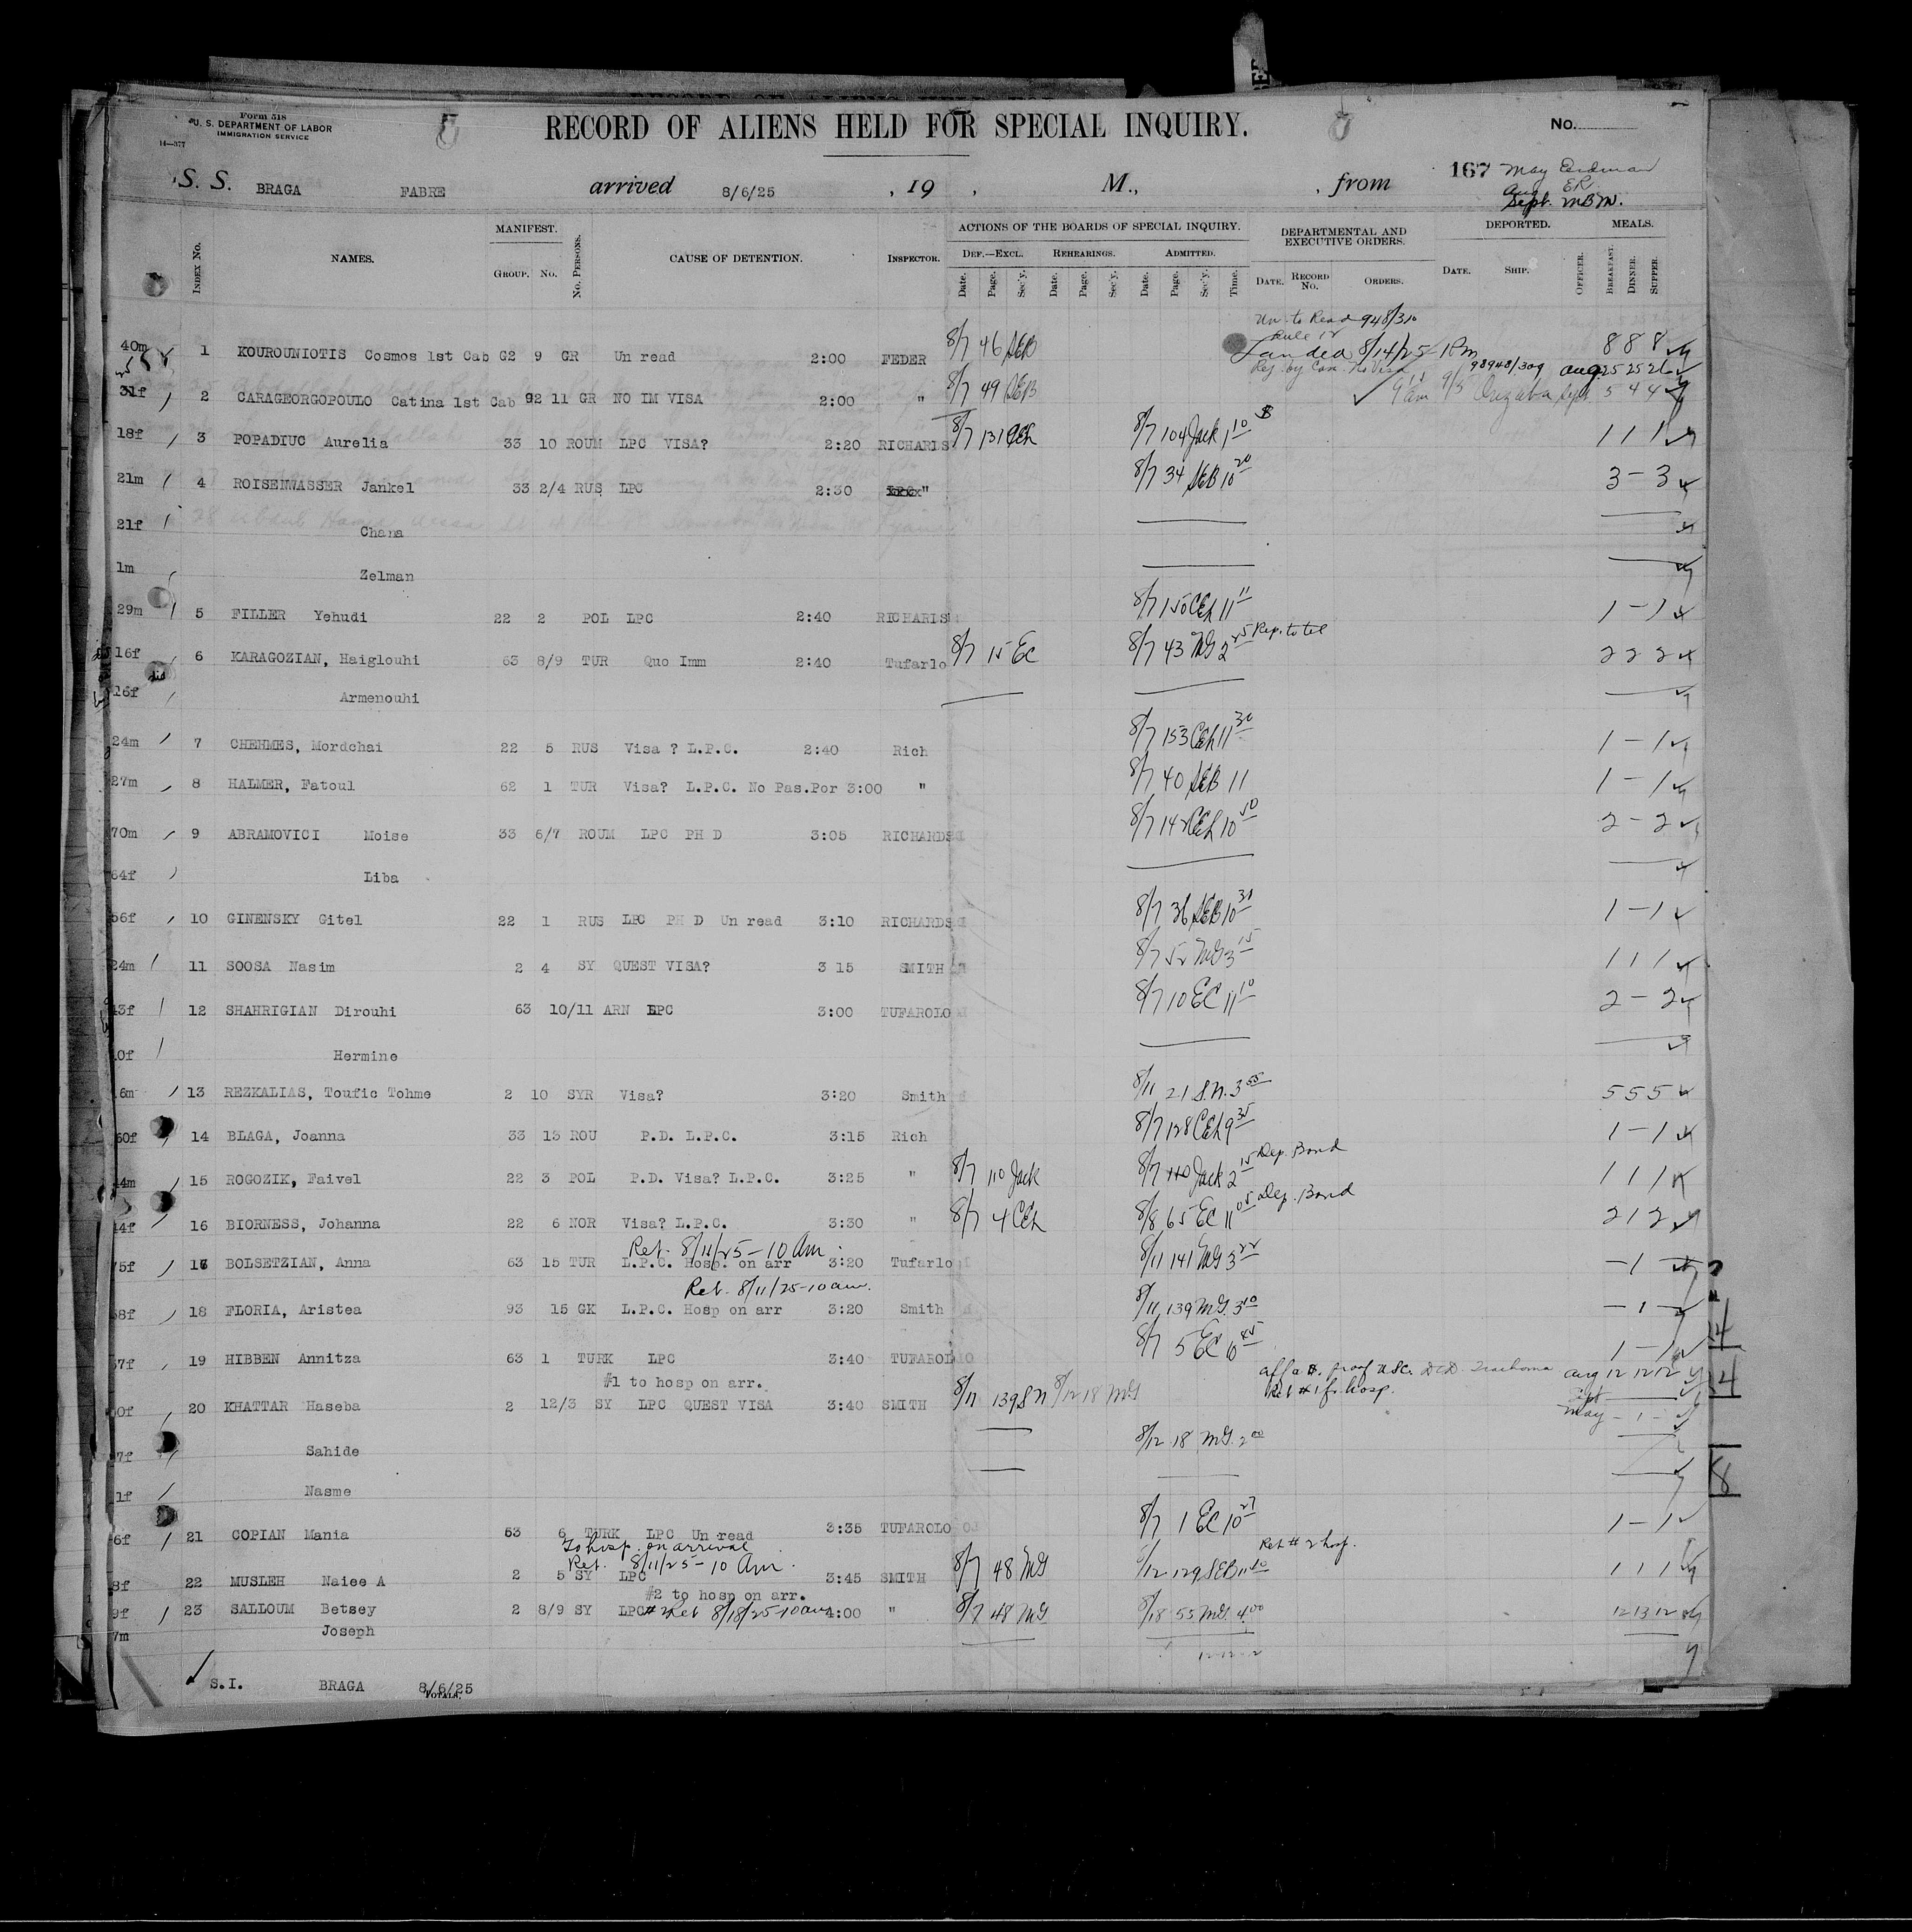 Form 518
U. S. DEPARTMENT OF LABOR
IMMIGRATION SERVICE
14—377
RECORD OF ALIENS HELD FOR SPECIAL INQUIRY.
No.
S. S. BRAGA FABRE arrived 8/6/25 , 19 , M., , from 167 May Erdman
Aug ER
Sept. MBM.
Index No. NAMES. MANIFEST. Group. No. No. Persons. CAUSE OF DETENTION. Inspector. ACTIONS OF THE BOARDS OF SPECIAL INQUIRY. Def.—Excl. Rehearings. Admitted. DEPARTMENTAL AND EXECUTIVE ORDERS. DEPORTED. MEALS.
Date. Page. Sec'y. Date. Page. Sec'y. Date. Page. Sec'y. Time. Date. Record No. Orders. Date. Ship. Officer. Breakfast. Dinner. Supper.
Un to Read 948/310
Rule 12
40m 1 KOUROUNIOTIS Cosmos 1st Cab G2 9 GR Un read 2:00 FEDER 8/7 46 SEB Landed 8/14/25 1 Pm 8 8 8
98948/309 Aug 25 25 26
31f 2 CARAGEORGOPOULO Catina 1st Cab 92 11 GR NO IM VISA 2:00 " 8/7 49 SEB 9 am 9/5 Orizaba Sept 5 4 4
18f 3 POPADIUC Aurelia 33 10 ROUM LPC VISA? 2:20 RICHARIS 8/7 131 CEh 8/7 104 Jack 1 10 1 1 1
21m 4 ROISENWASSER Jankel 33 2/4 RUS LPC 2:30 " 8/7 34 SEB 10 20 3 – 3
21f Chana
1m Zelman
29m 5 FILLER Yehudi 22 2 POL LPC 2:40 RICHARIS 8/7 150 CEh 11 11 1 – 1
16f 6 KARAGOZIAN, Haiglouhi 63 8/9 TUR Quo Imm 2:40 Tufarlo 8/7 15 EC 8/7 43 MG 2 25 Rep. to tel 2 2 2
16f Armenouhi
24m 7 CHEHMES, Mordchai 22 5 RUS Visa ? L.P.C. 2:40 Rich 8/7 153 CEh 11 30 1 – 1
27m 8 HALMER, Fatoul 62 1 TUR Visa? L.P.C. No Pas.Por 3:00 " 8/7 40 SEB 11 1 – 1
70m 9 ABRAMOVICI Moise 33 6/7 ROUM LPC PH D 3:05 RICHARDS 8/7 142 CEh 10 50 2 – 2
64f Liba
56f 10 GINENSKY Gitel 22 1 RUS LPC PH D Un read 3:10 RICHARDS 8/7 36 SEB 10 30 1 – 1
24m 11 SOOSA Nasim 2 4 SY QUEST VISA? 3 15 SMITH 8/7 52 MG 3 15 1 1 1
43f 12 SHAHRIGIAN Dirouhi 63 10/11 ARN LPC 3:00 TUFAROLO 8/7 10 EC 11 10 2 – 2
0f Hermine
6m 13 REZKALIAS, Toufic Tohme 2 10 SYR Visa? 3:20 Smith 8/11 21 S.N. 3 55 5 5 5
60f 14 BLAGA, Joanna 33 13 ROU P.D. L.P.C. 3:15 Rich 8/7 128 CEh 9 35 1 – 1
44m 15 ROGOZIK, Faivel 22 3 POL P.D. Visa? L.P.C. 3:25 " 8/7 110 Jack 8/7 110 Jack 2 15 Dep. Bond 1 1 1
44f 16 BIORNESS, Johanna 22 6 NOR Visa? L.P.C. 3:30 " 8/7 4 CEh 8/8 65 EC 11 05 Dep. Bond 2 1 2
Ret. 8/11/25 – 10 Am.
75f 17 BOLSETZIAN, Anna 63 15 TUR L.P.C. Hosp. on arr 3:20 Tufarlo 8/11 141 MG 3 22 – 1 –
Ret. 8/11/25 – 10 am.
58f 18 FLORIA, Aristea 93 15 GK L.P.C. Hosp on arr 3:20 Smith 8/11 139 MG. 3 10 – 1 –
57f 19 HIBBEN Annitza 63 1 TURK LPC 3:40 TUFAROLO 8/7 5 EC 10 45 1 – 1
#1 to hosp on arr. Trachoma Aug 12 12 12
Ret #1 fr hosp. Sept
50f 20 KHATTAR Haseba 2 12/3 SY LPC QUEST VISA 3:40 SMITH 8/11 139 SN 8/12 18 MG May – 1 –
7f Sahide 8/12 18 MG. 2 00
1f Nasme
6f 21 COPIAN Mania 63 6 TURK LPC Un read 3:35 TUFAROLO 8/7 1 EC 10 27 1 – 1
To hosp. on arrival Ret # 2 hosp.
Ret. 8/11/25 – 10 Am.
8f 22 MUSLEH Naiee A 2 5 SY LPC 3:45 SMITH 8/7 48 MG 8/12 129 SEB 11 1 1 1
#2 to hosp on arr.
9f 23 SALLOUM Betsey 2 8/9 SY LPC #2 Ret 8/18/25 10 am 4:00 " 8/7 48 MG 8/18 55 MG. 4 00 12 13 12
7m Joseph
S.I. BRAGA 8/6/25
Totals.